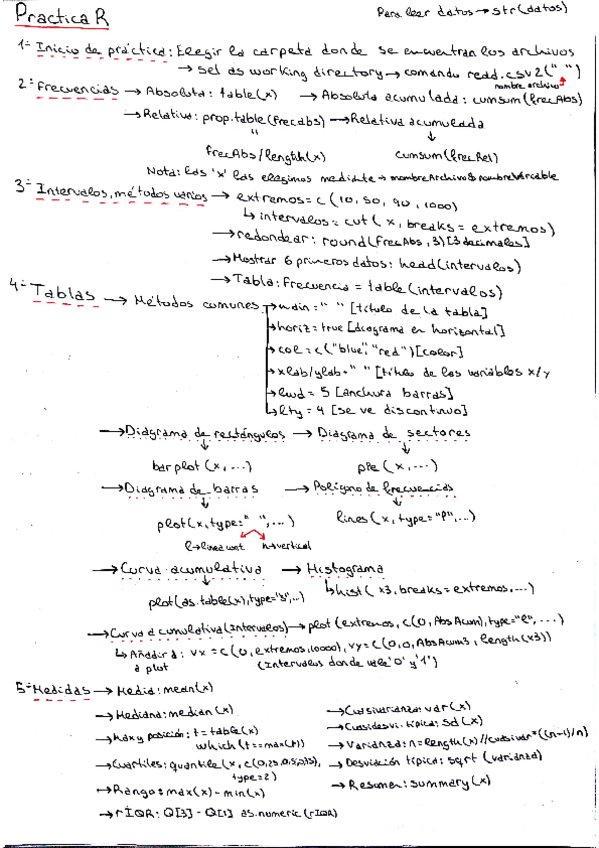 Practica R
Para leer datos → str(datos)
1- Inicio de práctica: Elegir la carpeta donde se encuentran los archivos
→ set as working directory → comando read.csv2(" ")
nombre archivo
2- Frecuencias → Absoluta: table(x) → Absoluta acumulada: cumsum(frecAbs)
→ Relativa: prop.table(Frecabs) → Relativa acumulada
"
frecAbs/length(x) cumsum(frecRel)
Nota: las 'x' las elegimos mediante → nombreArchivo$nombreVariable
3- Intervalos, métodos varios → extremos = c(10, 50, 90, 1000)
↳ intervalos = cut(x, breaks = extremos)
→ redondear: round(FrecAbs, 3) [3 decimales]
→ Mostrar 6 primeros datos: head(intervalos)
→ Tabla: Frecuencia = table(intervalos)
4- Tablas → Métodos comunes → main = " " [título de la tabla]
→ horiz = true [diagrama en horizontal]
→ col = c("blue", "red") [color]
→ xlab/ylab = " " [título de las variables x/y
→ lwd = 5 [anchura barras]
→ lty = 4 [se ve discontinuo]
→ Diagrama de rectángulos → Diagrama de sectores
barplot(x, ...) pie(x, ...)
→ Diagrama de barras → Polígono de frecuencias
plot(x, type = " ", ...) lines(x, type = "l", ...)
l → linea cont h → vertical
→ Curva acumulativa → Histograma
plot(as.table(x), type="s", ..) ↳ hist(x3, breaks = extremos, ...)
→ Curva acumulativa (Intervalos) → plot(extremos, c(0, AbsAcum), type="l", ...)
↳ Añadir a: vx = c(0, extremos, 10000), vy = c(0, 0, AbsAcum3, length(x3))
a plot (Intervalos donde vale '0' y '1')
5- Medidas → Media: mean(x)
→ Mediana: median(x) → Cuasivarianza: var(x)
→ Max y posición: t = table(x) → Cuasidesvi. típica: sd(x)
which(t == max(t)) → Varianza: n = length(x) // cuasivar * ((n-1)/n)
→ Cuartiles: quantile(x, c(0,25, 0,5, 0,75), → Desviación típica: sqrt(varianza)
type = 2)
→ Rango: max(x) - min(x) → Resumen: summary(x)
→ rIQR: Q[3] - Q[1] as.numeric(rIQR)